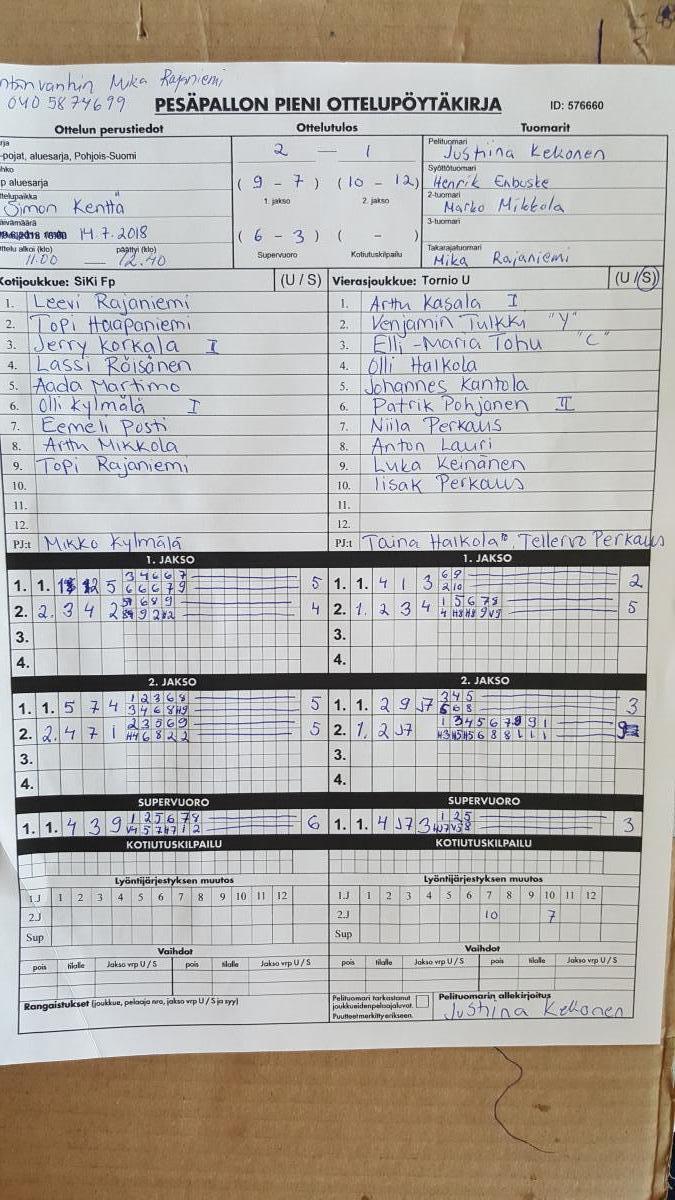 Mika Rajaniemi
040 5874699
PESÄPALLON PIENI OTTELUPÖYTÄKIRJA
ID: 576660
Ottelun perustiedot
Ottelutulos
Tuomarit
-pojat, aluesarja, Pohjois-Suomi
p aluesarja
Simon Kenttä
14.7.2018
ottelu alkoi (klo) päättyi (klo)
11.00 — 12.40
2 — 1
( 9 - 7 ) ( 10 - 12 )
1. jakso 2. jakso
( 6 - 3 ) ( - )
Supervuoro Kotiutuskilpailu
Pelituomari
Justiina Kekonen
Syöttötuomari
Henrik Enbuske
2-tuomari
Marko Mikkola
3-tuomari
Takarajatuomari
Mika Rajaniemi
Kotijoukkue: SiKi Fp (U / S)
1. Leevi Rajaniemi
2. Topi Haapaniemi
3. Jerry Korkala I
4. Lassi Röisänen
5. Aada Martimo
6. Olli Kylmälä I
7. Eemeli Posti
8. Arttu Mikkola
9. Topi Rajaniemi
10.
11.
12.
PJ:t Mikko Kylmälä
Vierasjoukkue: Tornio U (U / S)
1. Arttu Kasala I
2. Venjamin Tulkki "Y"
3. Elli-Maria Tohu "C"
4. Olli Halkola
5. Johannes Kantola
6. Patrik Pohjanen II
7. Niila Perkaus
8. Anton Lauri
9. Luka Keinänen
10. Iisak Perkaus
11.
12.
PJ:t Taina Halkola Tellervo Perkaus
1. JAKSO
1. 1. 5 5
2. 2. 3 4 2 4
3.
4.
1. JAKSO
1. 1. 4 1 3 2
2. 1. 2 3 4 5
3.
4.
2. JAKSO
1. 1. 5 7 4 5
2. 2. 4 7 1 5
3.
4.
2. JAKSO
1. 1. 2 9 J7 3
2. 1. 2 J7 9
3.
4.
SUPERVUORO
1. 1. 4 3 9 6
SUPERVUORO
1. 1. 4 J7 3 3
KOTIUTUSKILPAILU
KOTIUTUSKILPAILU
Lyöntijärjestyksen muutos
1.J 1 2 3 4 5 6 7 8 9 10 11 12
2.J
Sup
Lyöntijärjestyksen muutos
1.J 1 2 3 4 5 6 7 8 9 10 11 12
2.J 10 7
Sup
Vaihdot
pois tilalle Jakso vrp U / S pois tilalle Jakso vrp U / S
Vaihdot
pois tilalle Jakso vrp U / S pois tilalle Jakso vrp U / S
Rangaistukset (joukkue, pelaaja nro, jakso vrp U / S ja syy)
Pelituomari tarkastanut
joukkueiden pelaajaluvat.
Puutteet merkitty erikseen.
Pelituomarin allekirjoitus
Justiina Kekonen